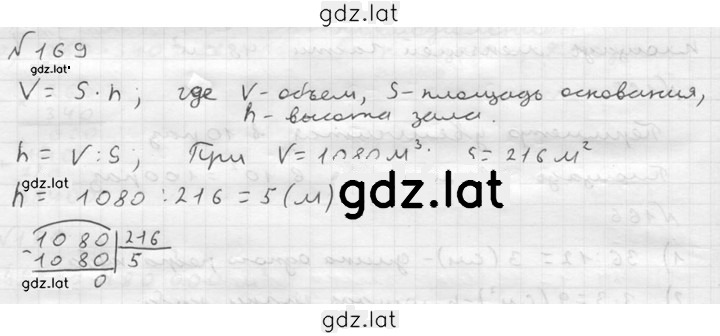 gdz.lat
№169
gdz.lat
V = S · h ; где V - объем, S - площадь основания,
h - высота зала.
h = V : S ; При V = 1080 м³. S = 216 м²
gdz.lat
h = 1080 : 216 = 5 (м)
gdz.lat
1080 | 216
- 1080 | 5
gdz.lat 0
gdz.lat